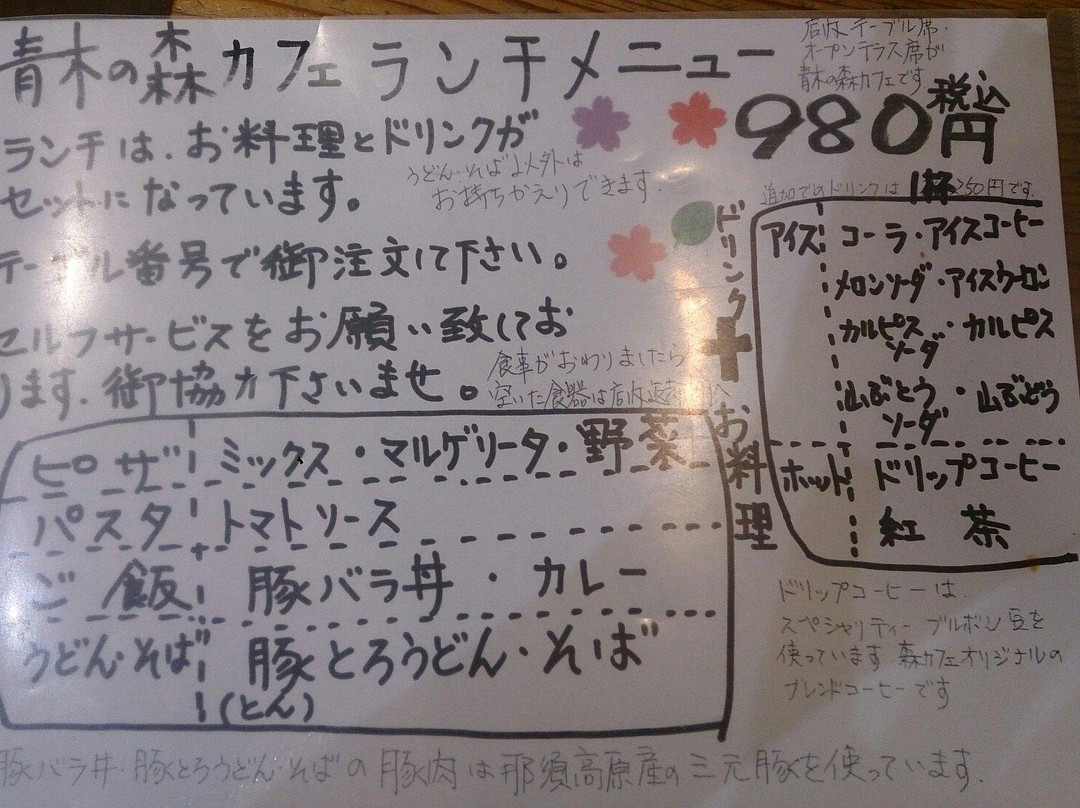 青木の森カフェ ランチメニュー
店内テーブル席・
オープンテラス席が
青木の森カフェです
980円 税込
ランチは、お料理とドリンクが
セットになっています。
うどん・そば以外は
お持ちかえりできます。
テーブル番号で御注文して下さい。
セルフサービスをお願い致してお
ります、御協力下さいませ。
食事がおわりましたら
空いた食器は
ピザ ミックス・マルゲリータ・野菜
パスタ トマトソース
ご飯 豚バラ丼・カレー
うどん・そば 豚とろうどん・そば
(とん)
ドリンク
+
お料理
追加でのドリンクは1杯250円です。
アイス コーラ・アイスコーヒー
メロンソーダ・アイスウーロン
カルピスソーダ・カルピス
山ぶどうソーダ・山ぶどう
ホット ドリップコーヒー
紅茶
ドリップコーヒーは、
スペシャリティーブルボン豆を
使っています 森カフェオリジナルの
ブレンドコーヒーです
豚バラ丼・豚とろうどん・そばの豚肉は那須高原産の三元豚を使っています。